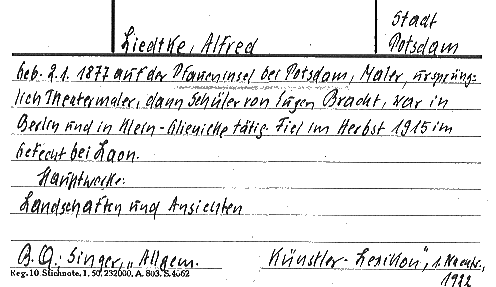 Stadt
Liedtke, Alfred Potsdam
Geb. 2.1.1877 auf der Pfaueninsel bei Potsdam, Maler, ursprüng-
lich Theatermaler, dann Schüler von Eugen Bracht, war in
Berlin und in Klein-Glienicke tätig. Fiel im Herbst 1915 im
Gefecht bei Laon.
Hauptwerke:
Landschaften und Ansichten
B.Q.: Singer, „Allgem. Künstler-Lexikon", 1. Nachtr.,
Reg. 10 Stichnote. 1. 50. 232000. A. 803. S. 4662
1922